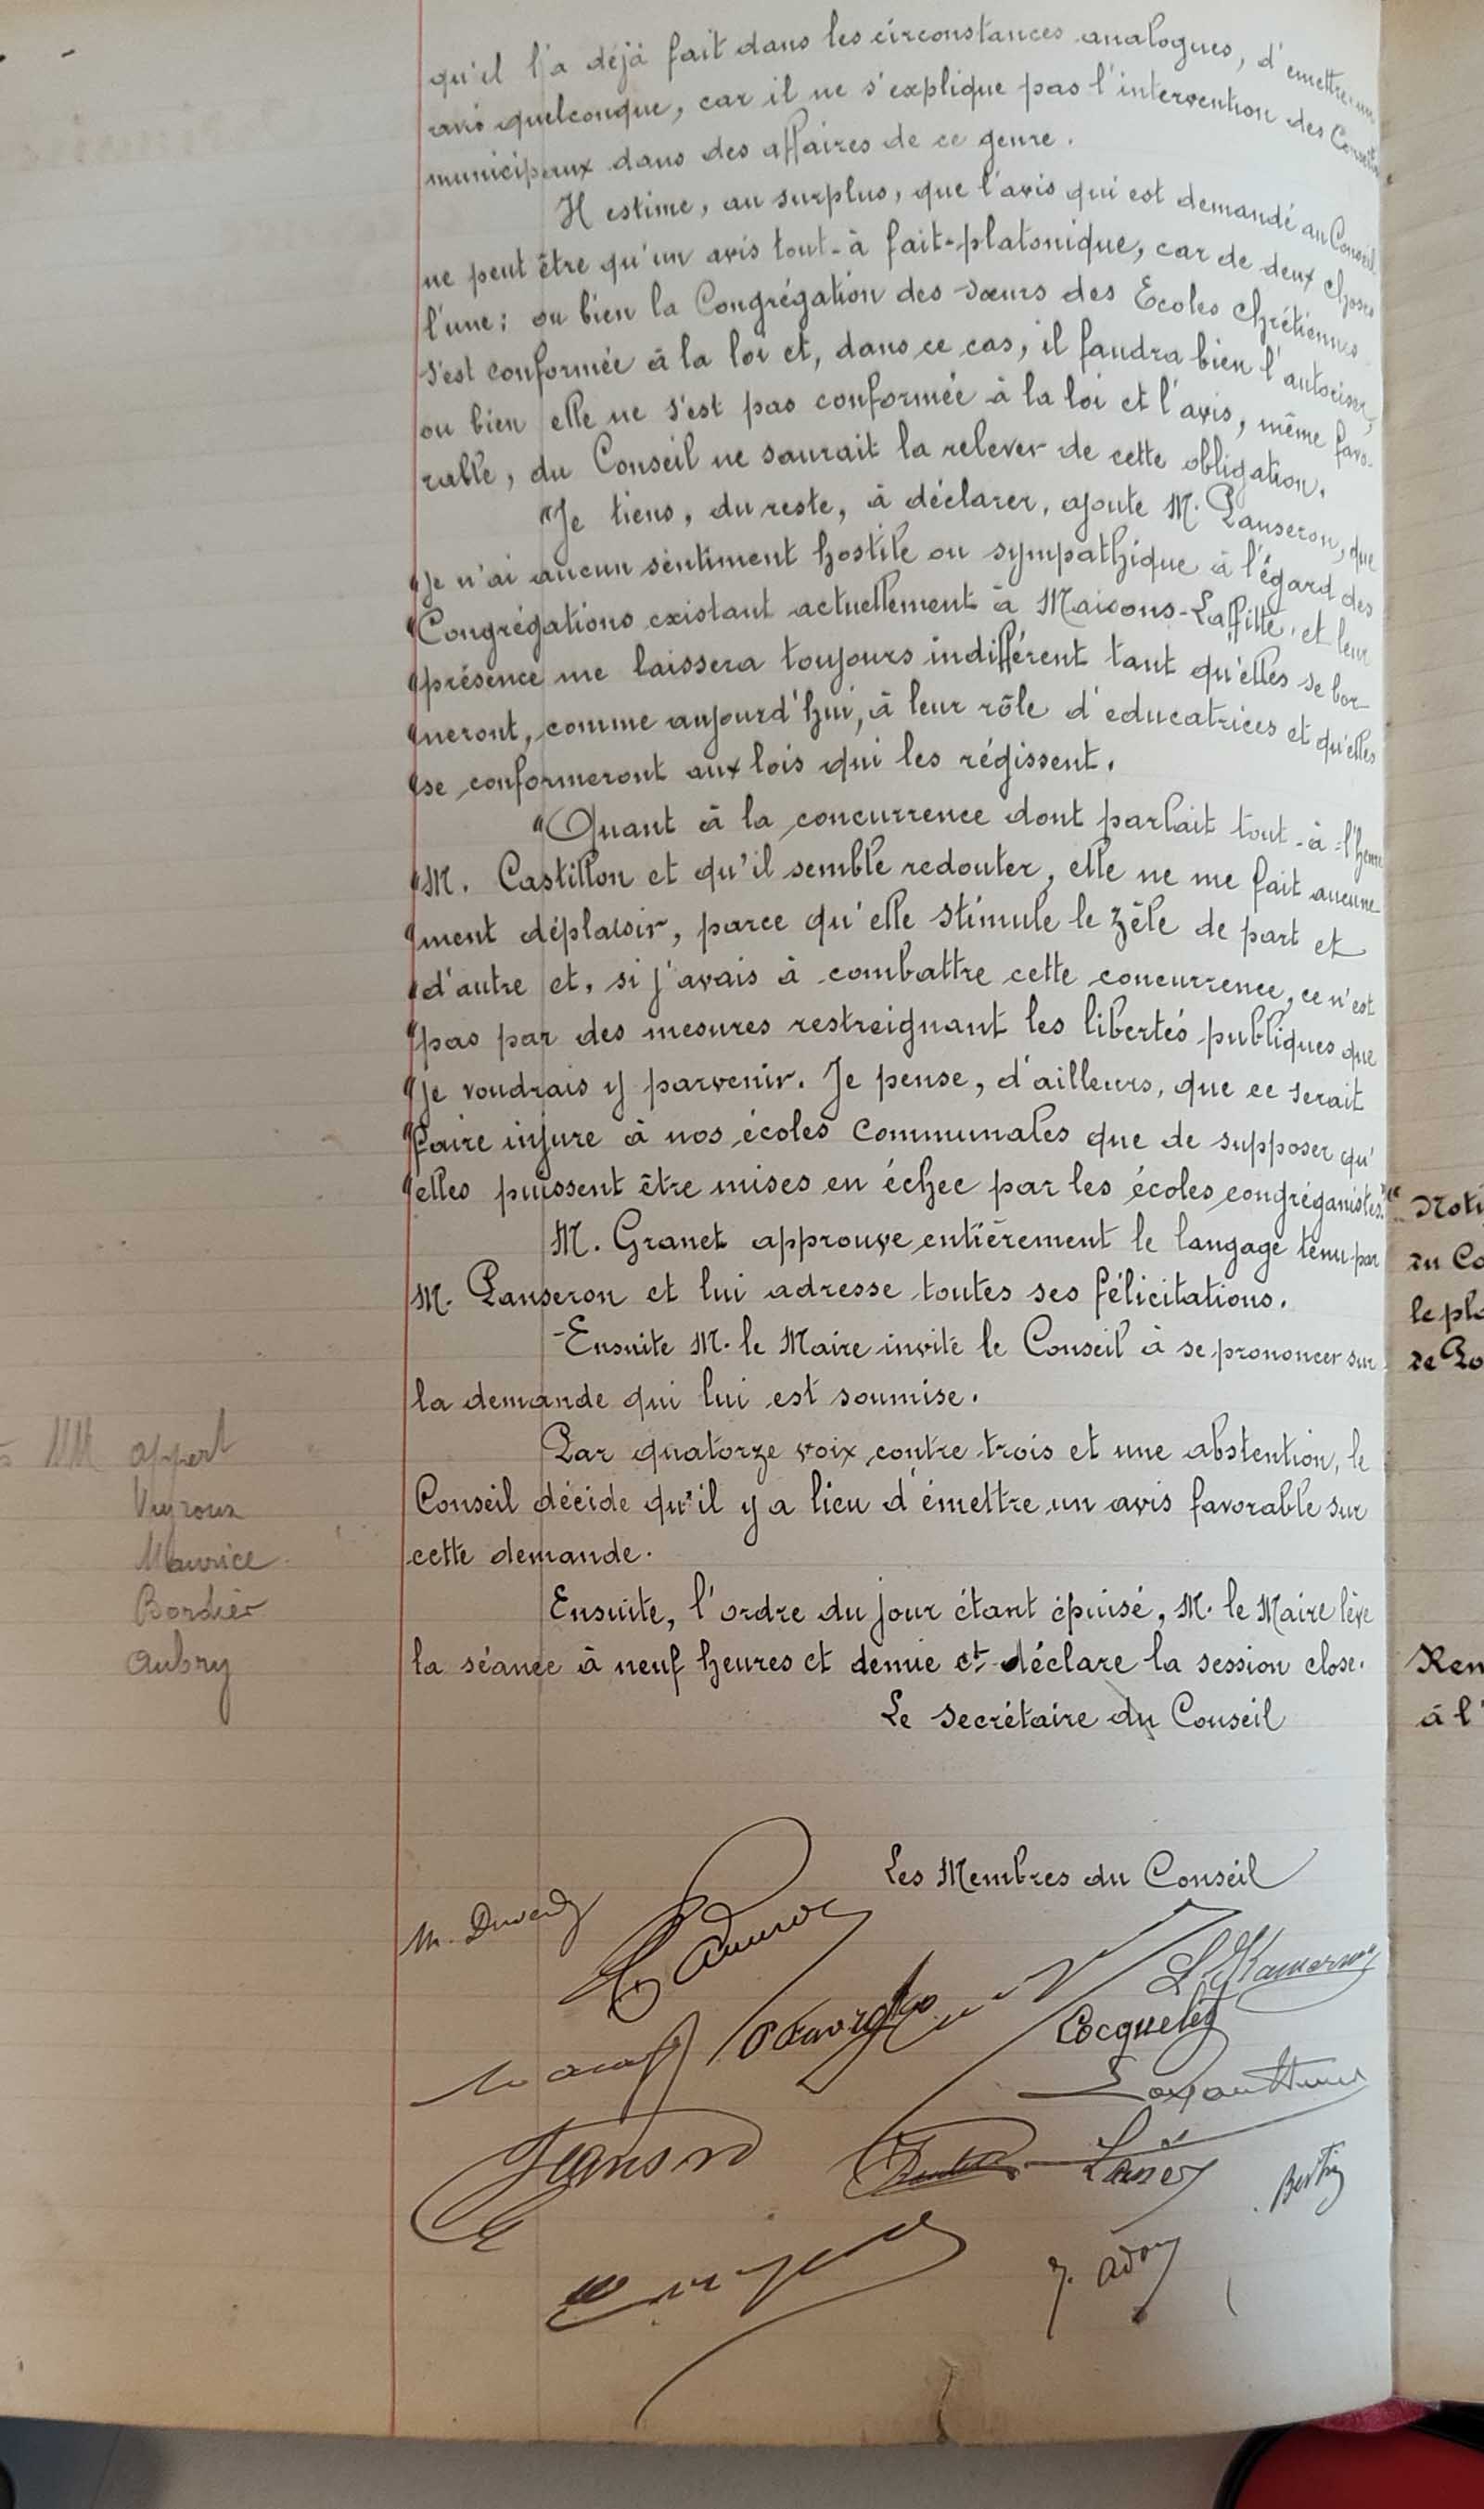 qu'il l'a déjà fait dans les circonstances analogues, d'emettre un
avis quelconque, car il ne s'explique pas l'intervention des Conseils
municipaux dans des affaires de ce genre.
Il estime, au surplus, que l'avis qui est demandé au Conseil
ne peut être qu'un avis tout-à fait-platonique, car de deux choses
l'une: ou bien la Congrégation des sœurs des Ecoles Chrétiennes
s'est conformée à la loi et, dans ce cas, il faudra bien l'autoriser,
ou bien elle ne s'est pas conformée à la loi et l'avis, même favo-
rable, du Conseil ne saurait la relever de cette obligation.
"Je tiens, du reste, à déclarer, ajoute M. Panseron, que
"je n'ai aucun sentiment hostile ou sympathique à l'égard des
"Congrégations existant actuellement à Maisons-Laffitte, et leur
"présence me laissera toujours indifférent tant qu'elles se bor-
"neront, comme aujourd'hui, à leur rôle d'educatrices et qu'elles
"se conformeront aux lois qui les régissent.
"Quant à la concurrence dont parlait tout-à-l'heure
"M. Castillon et qu'il semble redouter, elle ne me fait aucune-
"ment déplaisir, parce qu'elle stimule le zèle de part et
"d'autre et, si j'avais à combattre cette concurrence, ce n'est
"pas par des mesures restreignant les libertés publiques que
"je voudrais y parvenir. Je pense, d'ailleurs, que ce serait
"faire injure à nos écoles communales que de supposer qu'
"elles puissent être mises en échec par les écoles congréganistes."
M. Granet approuve entièrement le langage tenu par
M. Panseron et lui adresse toutes ses félicitations.
Ensuite M. le Maire invite le Conseil à se prononcer sur
la demande qui lui est soumise.
Par quatorze voix contre trois et une abstention, le
Conseil décide qu'il y a lieu d'émettre un avis favorable sur
cette demande.
Ensuite, l'ordre du jour étant épuisé, M. le Maire lève
la séance à neuf heures et demie et déclare la session close.
Le Secrétaire du Conseil
Les Membres du Conseil
MM appert
Veyroux
Maurice
Bordier
Aubry
Cocquelet